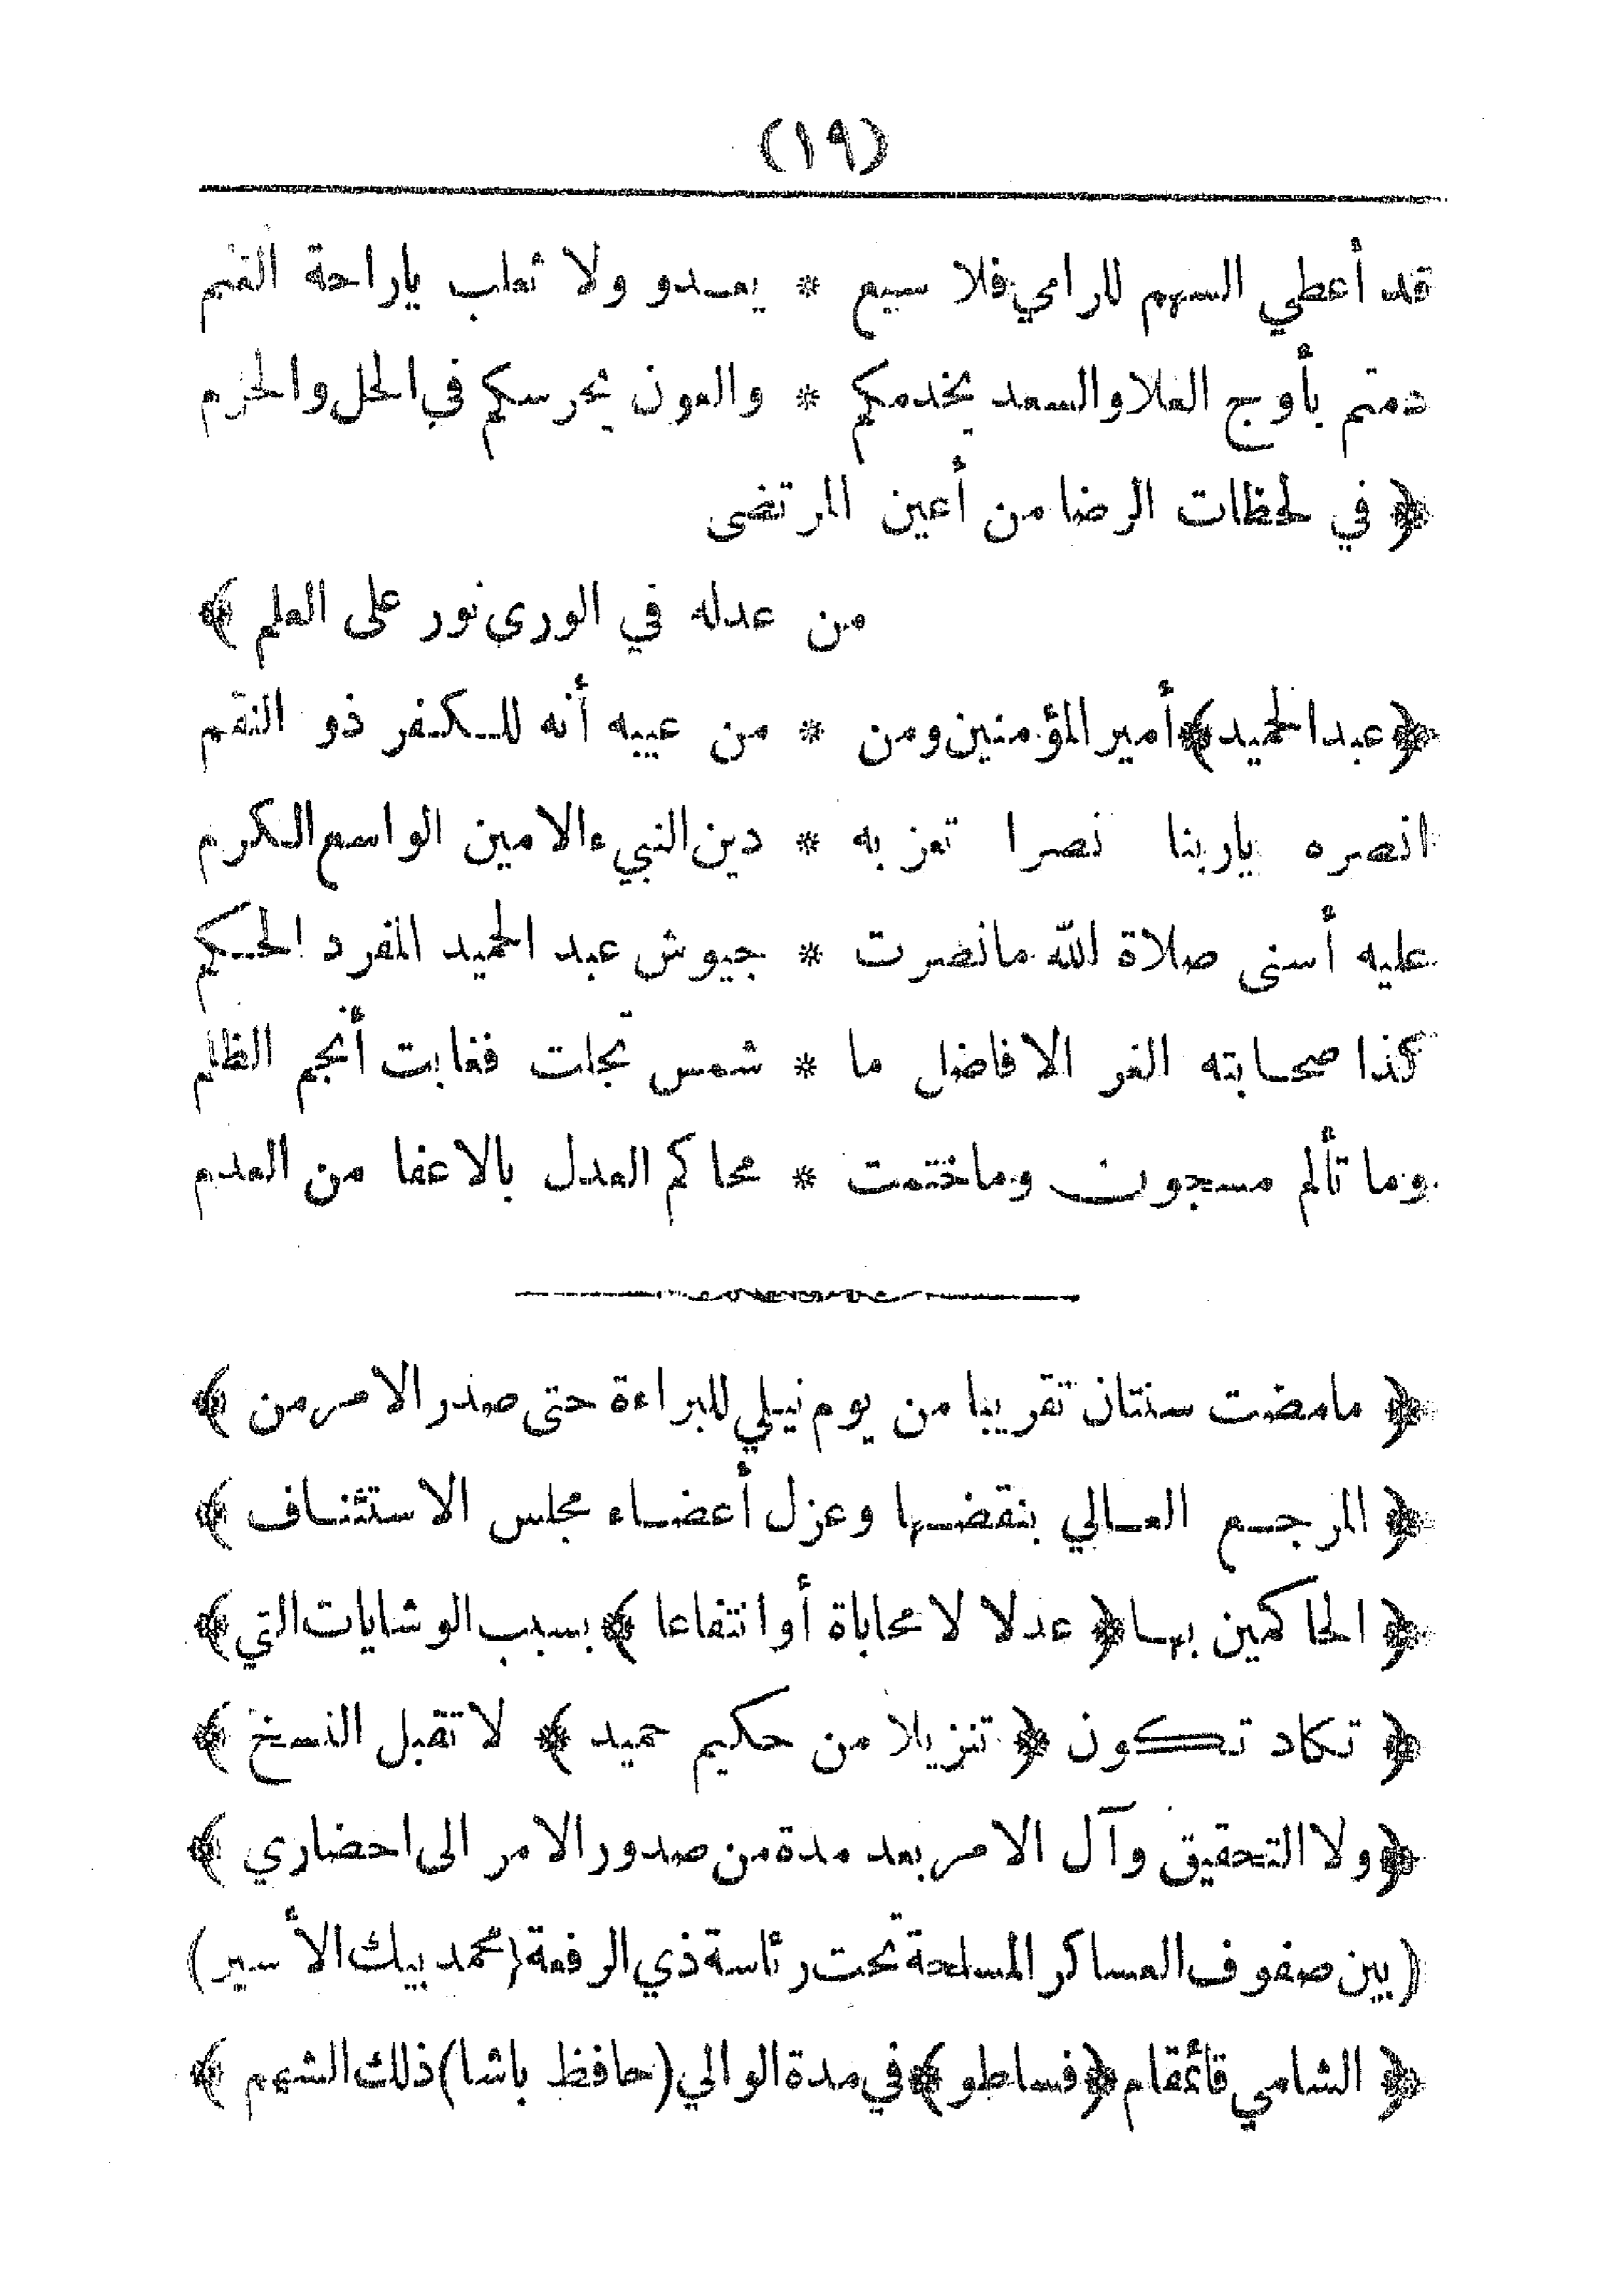 (١٩)
قد أعطي السهم للرامي فلا سبع * يعدو ولا ثعلب ياراحة الغنم
دمتم بأوج العلا والسعد يخدمكم * والعون يحرسكم في الحل والحرم
﴿ في لحظات الرضا من أعين المرتضى
من عدله في الورى نور على العلم ﴾
﴿عبد الحميد﴾ أمير المؤمنين ومن * من عيبه أنه للكفر ذو النقم
انصره ياربنا نصرا تعز به * دين النبيء الامين الواسع الكرم
عليه أسنى صلاة لله مانصرت * جيوش عبد الحميد المفرد الحكم
كذا صحابته الغر الافاضل ما * شمس تجلت فغابت أنجم الظلم
وما تألم مسجون وماختمت * محاكم العدل بالاعفا من العدم
﴿ مامضت سنتان تقريبا من يوم نيلي للبراءة حتى صدر الامر من ﴾
﴿ المرجع العالي بنقضها وعزل أعضاء مجلس الاستئناف ﴾
﴿ الحاكمين بها ﴿ عدلا لا محاباة أو انتفاعا ﴾ بسبب الوشايات التي ﴾
﴿ تكاد تكون ﴿ تنزيلا من حكيم حميد ﴾ لا تقبل النسخ ﴾
﴿ ولا التحقيق وآل الامر بعد مدة من صدور الامر الى احضاري ﴾
(بين صفوف العساكر المسلحة تحت رئاسة ذي الرفعة (محمد بيك الأسير)
﴿ الشامي قائمقام ﴿فساطو﴾ في مدة الوالي (حافظ باشا) ذلك الشهم ﴾